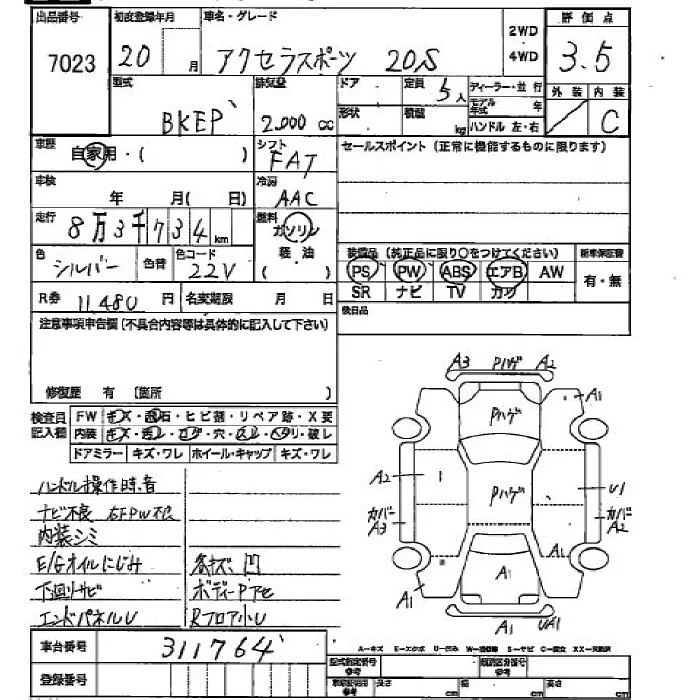 出品番号 初度登録年月 車名・グレード 2WD 評価点
7023 20 月 アクセラスポーツ 20S 4WD 3.5
型式 排気量 ドア 定員 5人 ディーラー・並行 外装 内装
BKEP 2,000 cc 形状 積載 kg モデル年式 年 C
ハンドル 左・右
車歴 自家用・( ) シフト FAT セールスポイント (正常に機能するものに限ります)
車検 年 月( 日) 冷房 AAC
走行 8万3千734km 燃料 ガソリン
軽油
( )
色 シルバー 色替 色コード 22V
装備品 (純正品に限り○をつけてください) 新車保証書
PS PW ABS エアB AW 有・無
SR ナビ TV カワ
R券 11,480 円 名変期限 月 日
後日品
注意事項申告欄 (不具合内容等は具体的に記入して下さい)
修復歴 有 〔箇所 〕
検査員記入欄 FW キズ・飛石・ヒビ割・リペア跡・X要
内装 キズ・汚レ・コゲ・穴・スレ・ヘタリ・破レ
ドアミラー キズ・ワレ ホイール・キャップ キズ・ワレ
ハンドル操作時音
ナビ不良 右FPW不良
内装シミ
E/Gオイルにじみ 各キズ凹
下回りサビ ボディーPアセ
エンドパネルU Rフロア小U
A3 Pハゲ A2
A1
Pハゲ
A2 Pハゲ U1
カバー A3 カバー A2
A1
A1 A1
A1 UA1
車台番号 311764
登録番号
A-キズ E-エクボ U-凹み W-補修跡 S-サビ C-腐食 XX-交換済
型式指定番号 参考 類別区分番号 参考
車検証明書 参考 長さ cm 幅 cm 高さ cm